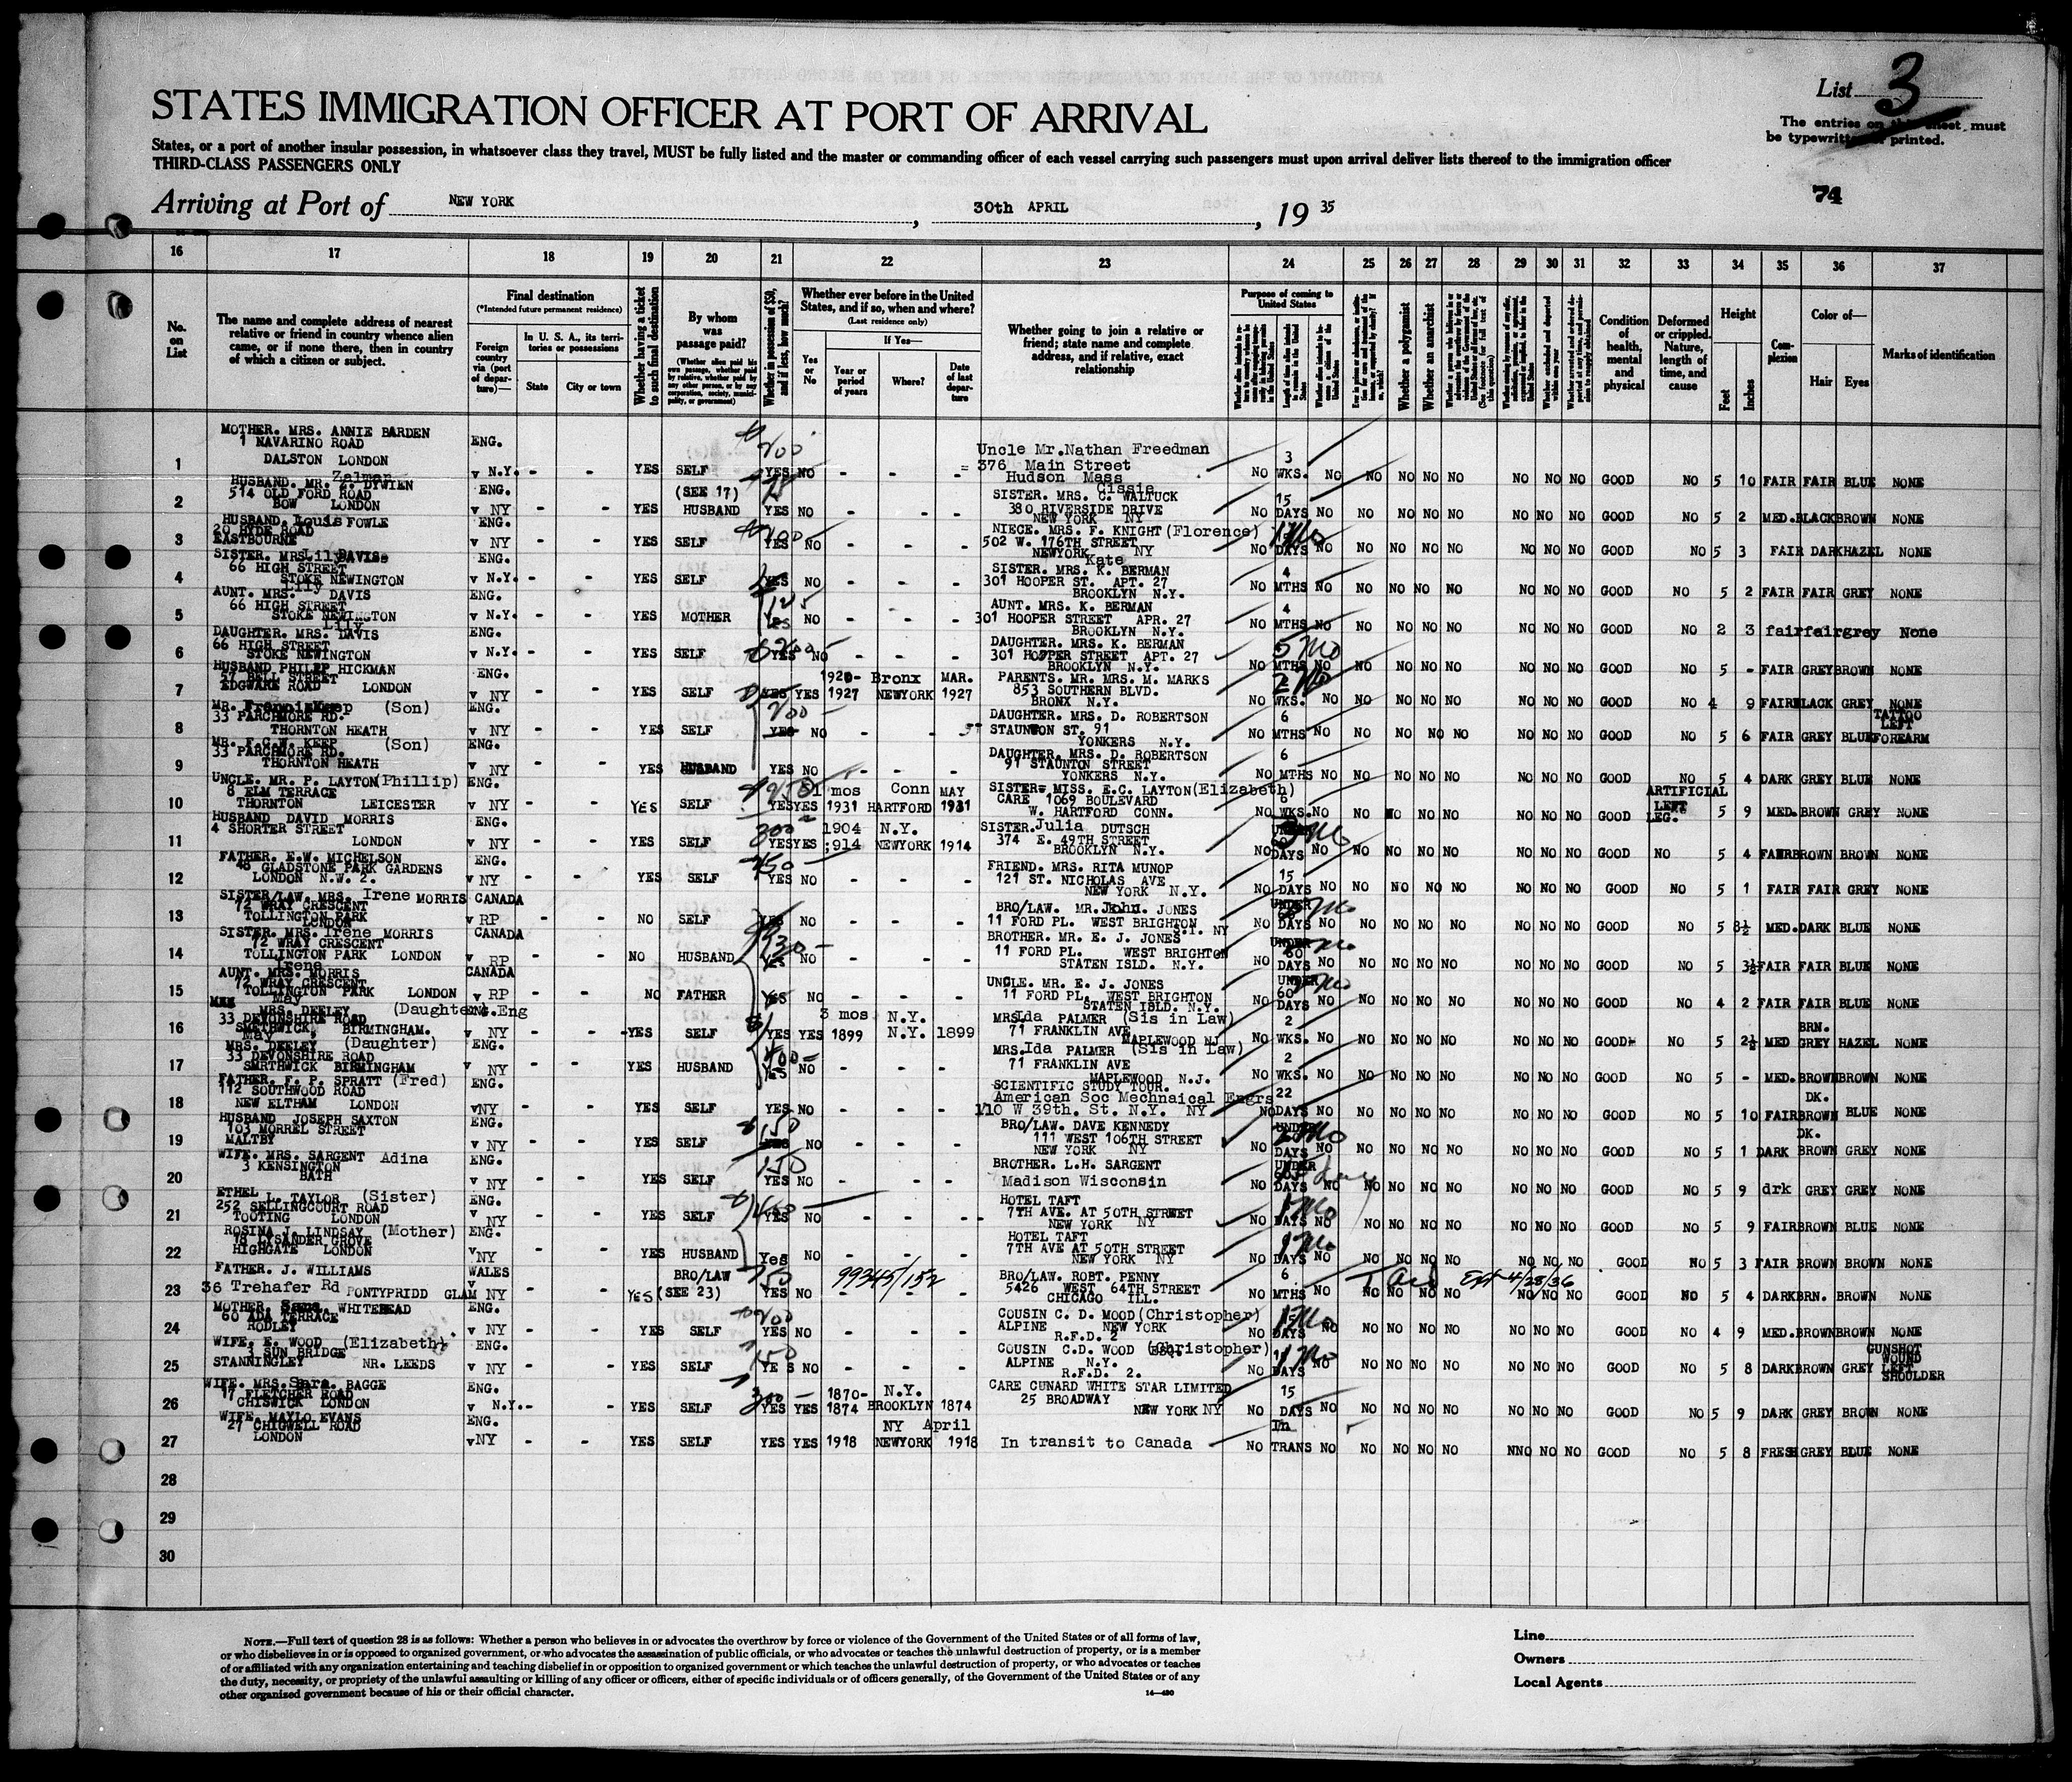 List 3
The entries on this sheet must
be typewritten or printed.
STATES IMMIGRATION OFFICER AT PORT OF ARRIVAL
States, or a port of another insular possession, in whatsoever class they travel, MUST be fully listed and the master or commanding officer of each vessel carrying such passengers must upon arrival deliver lists thereof to the immigration officer
THIRD-CLASS PASSENGERS ONLY
74
Arriving at Port of NEW YORK, 30th APRIL, 19 35
16 17 18 19 20 21 22 23 24 25 26 27 28 29 30 31 32 33 34 35 36 37
No. on List
The name and complete address of nearest relative or friend in country whence alien came, or if none there, then in country of which a citizen or subject.
Final destination
(*Intended future permanent residence)
Foreign country via (port of departure)—
In U. S. A., its territories or possessions
State
City or town
Whether having a ticket to such final destination
By whom was passage paid?
Whether in possession of $50, and if less, how much?
Whether ever before in the United States, and if so, when and where?
(Last residence only)
Yes or No
If Yes—
Year or period of years
Where?
Date of last departure
Whether going to join a relative or friend; state name and complete address, and if relative, exact relationship
Purpose of coming to United States
Whether a polygamist
Whether an anarchist
Condition of health, mental and physical
Deformed or crippled. Nature, length of time, and cause
Height
Feet
Inches
Complexion
Color of—
Hair
Eyes
Marks of identification
1 MOTHER. MRS. ANNIE BARDEN 1 NAVARINO ROAD DALSTON LONDON ENG. v N.Y. - - YES SELF YES NO - - - Uncle Mr. Nathan Freedman 376 Main Street Hudson Mass NO 3 WKS. NO NO NO NO NO NO NO NO GOOD NO 5 10 FAIR FAIR BLUE NONE
2 HUSBAND. MR. Z. DYWIEN Zelman 514 OLD FORD ROAD BOW LONDON ENG. v NY - - YES (SEE 17) HUSBAND YES NO - - - SISTER. MRS. C. WALTUCK Cissie 380 RIVERSIDE DRIVE NEW YORK NY NO 15 DAYS NO NO NO NO NO NO NO NO GOOD NO 5 2 MED. BLACK BROWN NONE
3 HUSBAND. Louis FOWLE 20 HYDE ROAD EASTBOURNE ENG. v NY - - YES SELF 100 YES NO - - - NIECE. MRS. F. KNIGHT (Florence) 502 W. 176TH STREET NEWYORK NY NO 1 Mo DAYS NO NO NO NO NO NO NO NO GOOD NO 5 3 FAIR DARK HAZEL NONE
4 SISTER. MRS Lily DAVIS 66 HIGH STREET STOKE NEWINGTON ENG. v N.Y. - - YES SELF YES NO - - - SISTER. MRS. K. BERMAN Kate 301 HOOPER ST. APT. 27 BROOKLYN N.Y. NO 4 MTHS NO NO NO NO NO NO NO NO GOOD NO 5 2 FAIR FAIR GREY NONE
5 AUNT. MRS. Lily DAVIS 66 HIGH STREET STOKE NEWINGTON ENG. v N.Y. - - YES MOTHER Yes NO - - - AUNT. MRS. K. BERMAN 301 HOOPER STREET APR. 27 BROOKLYN N.Y. NO 4 MTHS NO NO NO NO NO NO NO NO GOOD NO 2 3 fair fair grey None
6 DAUGHTER. MRS. Lily DAVIS 66 HIGH STREET STOKE NEWINGTON ENG. v N.Y. - - YES SELF YES NO - - - DAUGHTER. MRS. K. BERMAN 301 HOOPER STREET APT. 27 BROOKLYN N.Y. NO 5 Mo MTHS NO NO NO NO NO NO NO NO GOOD NO 5 - FAIR GREY BROWN NONE
7 HUSBAND PHILIP HICKMAN 57 BELL STREET EDGWARE ROAD LONDON ENG. v NY - - YES SELF YES YES 1920- 1927 Bronx NEWYORK MAR. 1927 PARENTS. MR. MRS. M. MARKS 853 SOUTHERN BLVD. BRONX N.Y. NO 2 Mo WKS. NO NO NO NO NO NO NO NO GOOD NO 4 9 FAIR BLACK GREY NONE
8 MR. Francis Keep (Son) 33 PARCHMORE RD. THORNTON HEATH ENG. v NY - - YES SELF 200 YES NO - - - DAUGHTER. MRS. D. ROBERTSON STAUNTON ST. 91 YONKERS N.Y. NO 6 MTHS NO NO NO NO NO NO NO NO GOOD NO 5 6 FAIR GREY BLUE TATTOO LEFT FOREARM
9 MR. F.G.W. KEEP (Son) 33 PARCHMORE RD. THORNTON HEATH ENG. v NY - - YES HUSBAND YES NO - - - DAUGHTER. MRS. D. ROBERTSON 91 STAUNTON STREET YONKERS N.Y. NO 6 MTHS NO NO NO NO NO NO NO NO GOOD NO 5 4 DARK GREY BLUE NONE
10 UNCLE. MR. P. LAYTON (Phillip) 8 ELM TERRACE THORNTON LEICESTER ENG. v NY - - YES SELF YES YES 1 mos 1931 Conn HARTFORD MAY 1931 SISTER= MISS. E.C. LAYTON (Elizabeth) CARE 1069 BOULEVARD W. HARTFORD CONN. NO 6 WKS. NO NO NO NO NO NO NO NO GOOD ARTIFICIAL LEFT LEG. 5 9 MED. BROWN GREY NONE
11 HUSBAND DAVID MORRIS 4 SHORTER STREET LONDON ENG. v NY - - YES SELF 300 YES YES 1904 ;914 N.Y. NEWYORK 1914 SISTER. Julia DUTSCH 374 E. 49TH STREET BROOKLYN N.Y. NO 3 Mo DAYS NO NO NO NO NO NO NO NO GOOD NO 5 4 FAIR BROWN BROWN NONE
12 FATHER. E.W. MICHELSON 48 GLADSTONE PARK GARDENS LONDON N.W. 2. ENG. v NY - - YES SELF YES NO - - - FRIEND. MRS. RITA MUNOP 121 ST. NICHOLAS AVE NEW YORK N.Y. NO 15 DAYS NO NO NO NO NO NO NO NO GOOD NO 5 1 FAIR FAIR GREY NONE
13 SISTER/LAW. MRS. Irene MORRIS 72 WRAY CRESCENT TOLLINGTON PARK LONDON CANADA v RP - - NO SELF YES NO - - - BRO/LAW. MR. John. JONES 11 FORD PL. WEST BRIGHTON S.I. NY NO UNDER DAYS NO NO NO NO NO NO NO NO GOOD NO 5 8½ MED. DARK BLUE NONE
14 SISTER. MRS. Irene MORRIS 72 WRAY CRESCENT TOLLINGTON PARK LONDON CANADA v RP - - NO HUSBAND YES NO - - - BROTHER. MR. E. J. JONES 11 FORD PL. WEST BRIGHTON STATEN ISLD. N.Y. NO UNDER 60 DAYS NO NO NO NO NO NO NO NO GOOD NO 5 3½ FAIR FAIR BLUE NONE
15 AUNT. MRS. Irene MORRIS 72 WRAY CRESCENT TOLLINGTON PARK LONDON CANADA v RP - - NO FATHER YES NO - - - UNCLE. MR. E. J. JONES 11 FORD PL. WEST BRIGHTON STATEN ISLD. N.Y. NO UNDER 60 DAYS NO NO NO NO NO NO NO NO GOOD NO 4 2 FAIR FAIR BLUE NONE
16 May MRS. DEELEY (Daughter) 33 DEVONSHIRE ROAD SMETHWICK, BIRMINGHAM. Eng v NY - - YES SELF YES YES 3 mos 1899 N.Y. N.Y. 1899 MRS Ida PALMER (Sis in Law) 71 FRANKLIN AVE MAPLEWOOD NJ NO 2 WKS. NO NO NO NO NO NO NO NO GOOD NO 5 2½ MED BRN. GREY HAZEL NONE
17 May MRS. DEELEY (Daughter) 33 DEVONSHIRE ROAD SMRTHWICK BIRMINGHAM ENG. v NY - - YES HUSBAND YES NO - - - MRS. Ida PALMER (Sis in Law) 71 FRANKLIN AVE MAPLEWOOD N.J. NO 2 WKS. NO NO NO NO NO NO NO NO GOOD NO 5 - MED. BROWN BROWN NONE
18 FATHER. F. P. SPRATT (Fred) 112 SOUTHWOOD ROAD NEW ELTHAM LONDON ENG. v NY - - YES SELF YES NO - - - SCIENTIFIC STUDY TOUR. American Soc Mechnaical Engrs 110 W 39th. St. N.Y. NY NO 22 DAYS NO NO NO NO NO NO NO NO GOOD NO 5 10 FAIR DK. BROWN BLUE NONE
19 HUSBAND JOSEPH SAXTON 103 MORREL STREET MALTBY ENG. v NY - - YES SELF 150 YES NO - - - BRO/LAW. DAVE KENNEDY 111 WEST 106TH STREET NEW YORK NY NO UNDER 2 Mo DAYS NO NO NO NO NO NO NO NO GOOD NO 5 1 DARK DK. BROWN GREY NONE
20 WIFE. MRS. SARGENT Adina 3 KENSINGTON BATH ENG. v NY - - YES SELF 150 YES NO - - - BROTHER. L.H. SARGENT Madison Wisconsin NO UNDER DAYS NO NO NO NO NO NO NO NO GOOD NO 5 9 drk GREY GREY NONE
21 ETHEL L. TAYLOR (Sister) 252 SELLINGCOURT ROAD TOOTING LONDON ENG. v NY - - YES SELF YES NO - - - HOTEL TAFT 7TH AVE. AT 50TH STREET NEW YORK NY NO 1 Mo DAYS NO NO NO NO NO NO NO NO GOOD NO 5 9 FAIR BROWN BLUE NONE
22 ROSINA J. LINDSAY (Mother) 18 LYSANDER GROVE HIGHGATE LONDON ENG. v NY - - YES HUSBAND Yes NO - - - HOTEL TAFT 7TH AVE AT 50TH STREET NEW YORK NY NO 1 Mo DAYS NO NO NO NO NO NO NO NO GOOD NO 5 3 FAIR BROWN BROWN NONE
23 FATHER. J. WILLIAMS 36 Trehafer Rd PONTYPRIDD GLAM WALES v NY - - YES BRO/LAW (SEE 23) 50 YES NO 99345/152 - - - BRO/LAW. ROBT. PENNY 5426 WEST 64TH STREET CHICAGO ILL. NO 6 MTHS NO NO NO NO NO Ext 4/28/36 NO NO NO GOOD NO 5 4 DARK BRN. BROWN NONE
24 MOTHER. Sara. WHITEHEAD 60 ADA TERRACE RODLEY ENG. v NY - - YES SELF 200 YES NO - - - COUSIN C. D. MOOD (Christopher) ALPINE NEW YORK R.F.D. 2 NO 1 Mo DAYS NO NO NO NO NO NO NO NO GOOD NO 4 9 MED. BROWN BROWN NONE
25 WIFE. E. WOOD (Elizabeth) 3 SUN BRIDGE STANNINGLEY NR. LEEDS ENG. v NY - - YES SELF 150 YES NO - - - COUSIN C.D. WOOD (Christopher) ALPINE N.Y. R.F.D. 2. NO 1 Mo DAYS NO NO NO NO NO NO NO NO GOOD NO 5 8 DARK BROWN GREY GUNSHOT WOUND LEFT SHOULDER
26 WIFE. MRS. Sara. BAGGE 17 FLETCHER ROAD CHISWICK LONDON ENG. v N.Y. - - YES SELF 300 YES YES 1870- 1874 N.Y. BROOKLYN 1874 CARE CUNARD WHITE STAR LIMITED 25 BROADWAY NEW YORK NY NO 15 DAYS NO NO NO NO NO NO NO NO GOOD NO 5 9 DARK GREY BROWN NONE
27 WIFE. MAYLO EVANS 27 CHIGWELL ROAD LONDON ENG. v NY - - YES SELF YES YES 1918 NY NEWYORK April 1918 In transit to Canada NO In TRANS NO NO NO NO NO NNO NO NO GOOD NO 5 8 FRESH GREY BLUE NONE
28
29
30
NOTE.—Full text of question 28 is as follows: Whether a person who believes in or advocates the overthrow by force or violence of the Government of the United States or of all forms of law,
or who disbelieves in or is opposed to organized government, or who advocates the assassination of public officials, or who advocates or teaches the unlawful destruction of property, or is a member
of or affiliated with any organization entertaining and teaching disbelief in or opposition to organized government or which teaches the unlawful destruction of property, or who advocates or teaches
the duty, necessity, or propriety of the unlawful assaulting or killing of any officer or officers, either of specific individuals or of officers generally, of the Government of the United States or of any
other organized government because of his or their official character.
14—430
Line
Owners
Local Agents